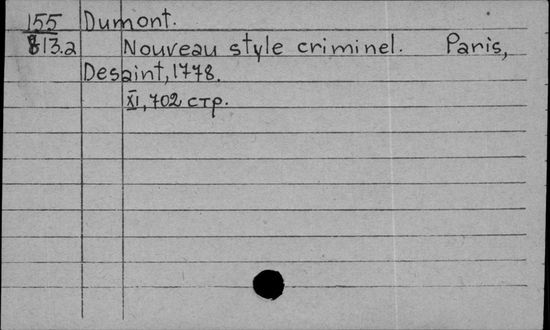 155 Dumont.
813.a Nouveau style criminel. Paris,
Desaint, 1778.
XI, 702 стр.